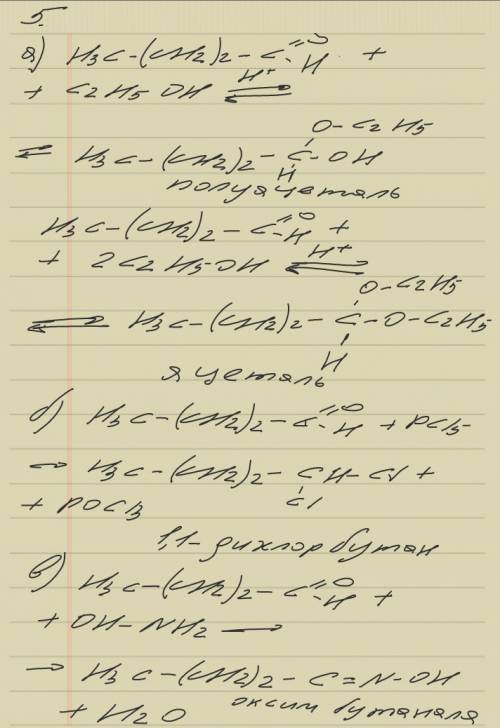 5.
а) H3C-(CH2)2-C=O-H +
+ C2H5OH H+ ⇌
O-C2H5
⇌ H3C-(CH2)2-C-OH
H
полуацеталь
H3C-(CH2)2-C=O-H +
+ 2C2H5OH H+ ⇌
O-C2H5
⇌ H3C-(CH2)2-C-O-C2H5
H
ацеталь
б) H3C-(CH2)2-C=O-H + PCl5
→ H3C-(CH2)2-CH-Cl +
Cl
+ POCl3
1,1-дихлорбутан
в) H3C-(CH2)2-C=O-H +
+ OH-NH2 →
→ H3C-(CH2)2-C=N-OH
+ H2O оксим бутаналя